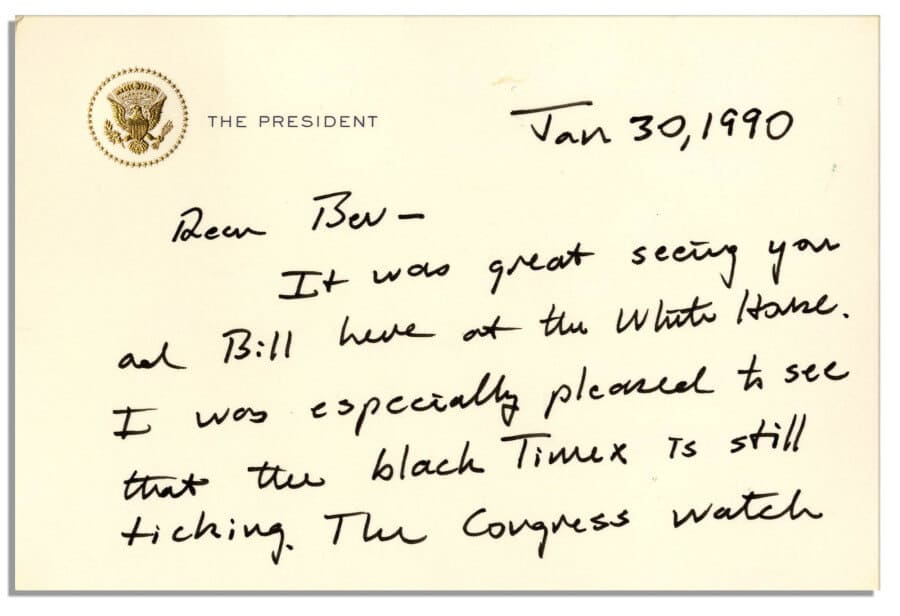 THE PRESIDENT
Jan 30, 1990
Dear Bev -
It was great seeing you
and Bill here at the White House.
I was especially pleased to see
that the black Timex is still
ticking. The Congress watch